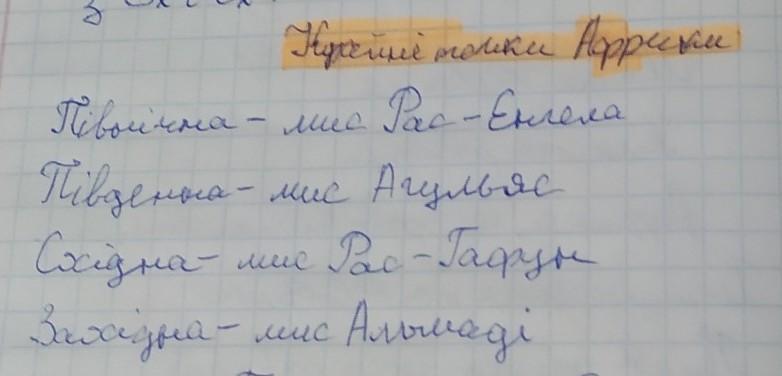 Крайні точки Африки
Північна - мис Рас-Енгела
Південна - мис Агульяс
Східна - мис Рас-Гафун
Західна - мис Альмаді